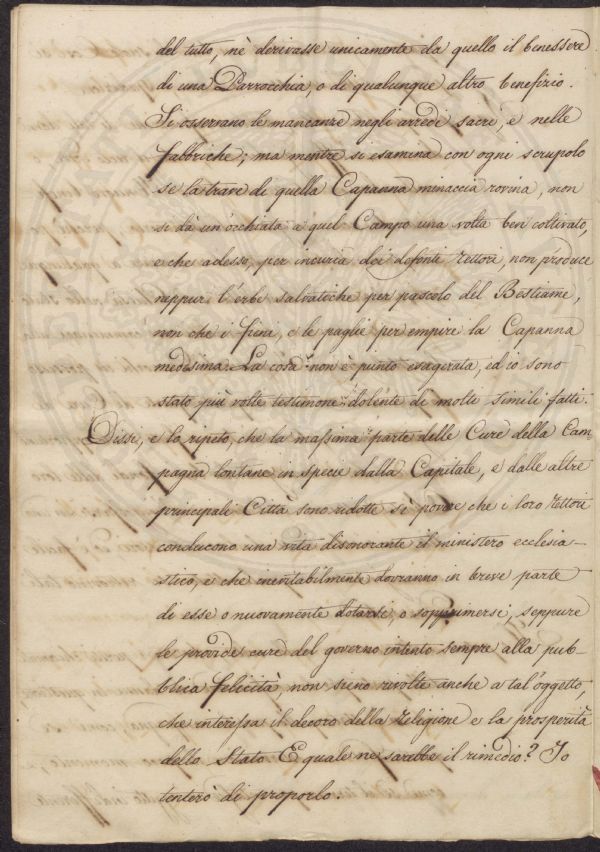 del tutto, nè derivasse unicamente da quello il benessere
di una Parrocchia, o di qualunque altro benefizio.
Si osservano le mancanze negli arredi sacri, e nelle
fabbriche; ma mentre si esamina con ogni scrupolo
se la trave di quella Capanna minaccia rovina, non
si dà un'occhiata a quel Campo una volta ben coltivato,
e che adesso, per incuria dei defonti Rettori, non produce
neppur l'erbe salvatiche per pascolo del Bestiame,
non che i fieni, e le paglie per empire la Capanna
medesima. La cosa non è punto esagerata, ed io sono
stato più volte testimone dolente di molte simili fatti.
Dissi, e lo ripeto, che la massima parte delle Cure della Cam,
pagna lontane in specie dalla Capitale, e dalle altre
principali Città sono ridotte sì povere che i loro Rettori
conducono una vita disonorante il ministero ecclesia-
stico, e che inevitabilmente dovranno in breve parte
di esse o nuovamente dotarsi, o sopprimersi, seppure
le provide cure del governo intento sempre alla pub-
blica felicità, non sieno rivolte anche a tal'oggetto,
che interessa il decoro della Religione e la prosperità
dello Stato E quale ne sarebbe il rimedio? Io
tenterò di proporlo.